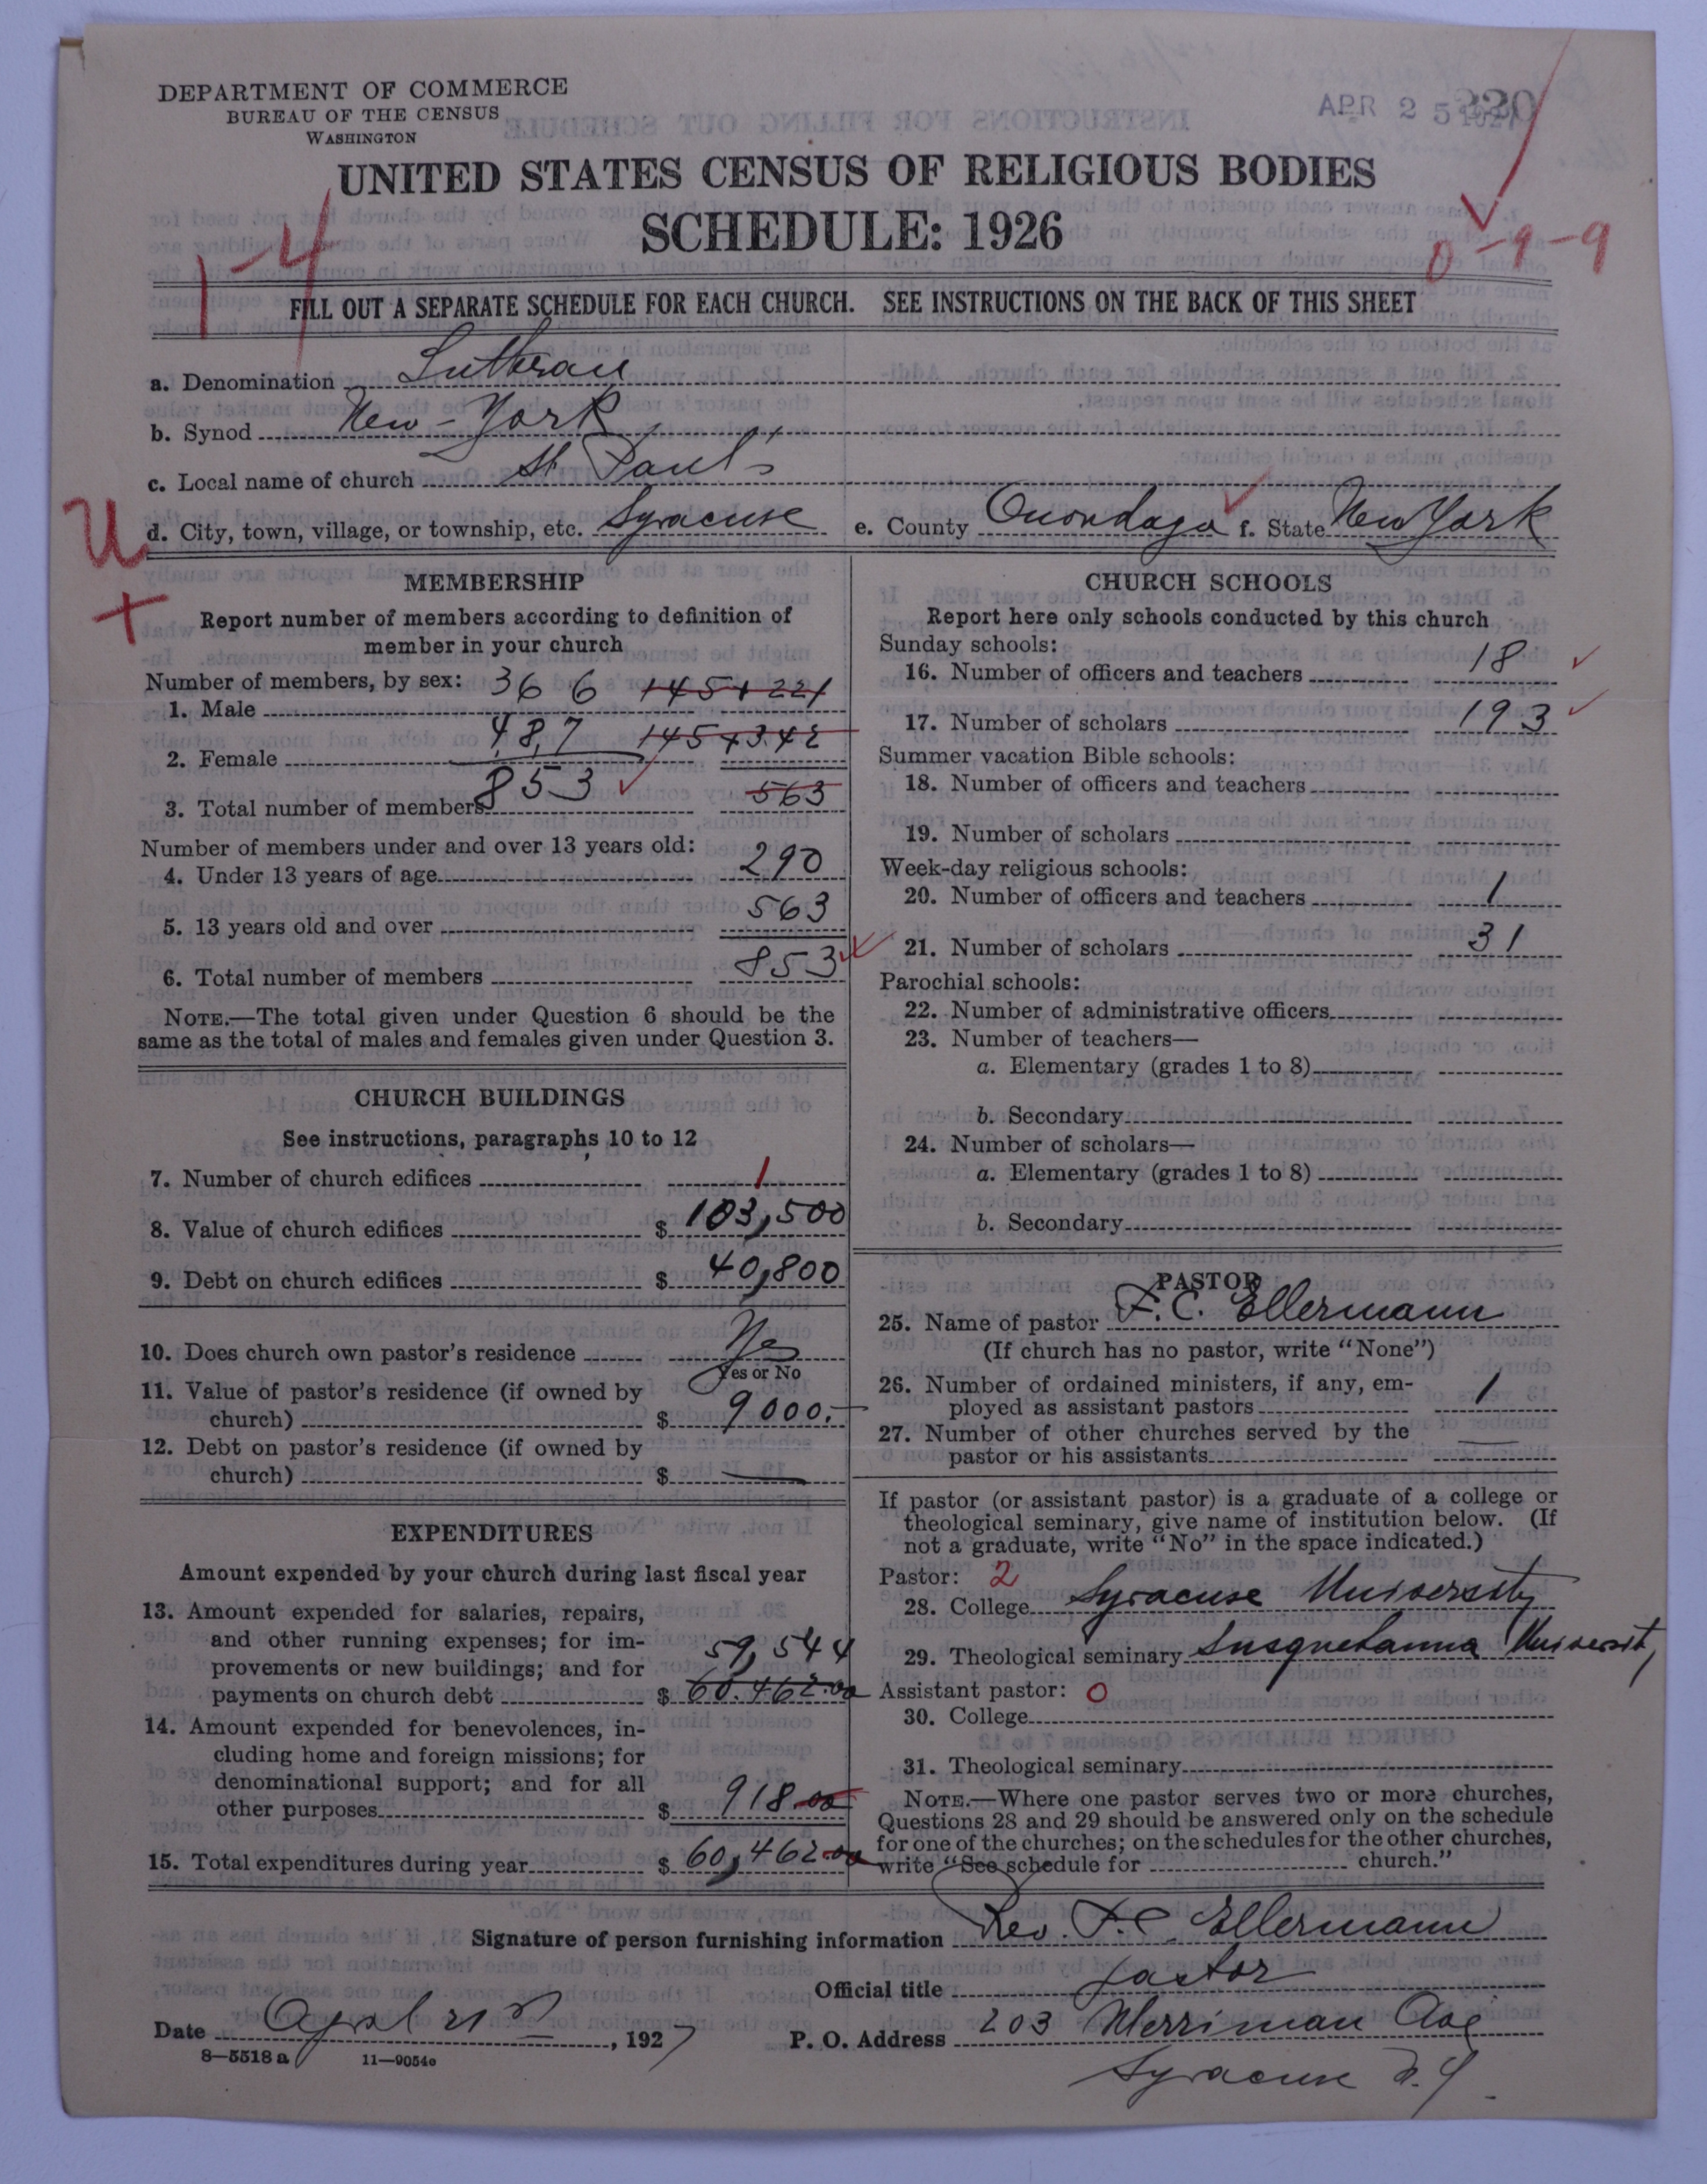 DEPARTMENT OF COMMERCE
BUREAU OF THE CENSUS
WASHINGTON
APR 25 1927
UNITED STATES CENSUS OF RELIGIOUS BODIES
SCHEDULE: 1926
1-4
0-9-9
FILL OUT A SEPARATE SCHEDULE FOR EACH CHURCH. SEE INSTRUCTIONS ON THE BACK OF THIS SHEET
a. Denomination Lutheran
b. Synod New-York
c. Local name of church St. Paul's
U d. City, town, village, or township, etc. Syracuse e. County Onondaga f. State New York
+
MEMBERSHIP
Report number of members according to definition of
member in your church
Number of members, by sex:
1. Male 366 145+221
2. Female 487 145+342
3. Total number of members 853 563
Number of members under and over 13 years old:
4. Under 13 years of age 290
5. 13 years old and over 563
6. Total number of members 853
NOTE.—The total given under Question 6 should be the
same as the total of males and females given under Question 3.
CHURCH BUILDINGS
See instructions, paragraphs 10 to 12
7. Number of church edifices 1
8. Value of church edifices $ 103,500
9. Debt on church edifices $ 40,800
10. Does church own pastor's residence Yes
Yes or No
11. Value of pastor's residence (if owned by
church) $ 9000.—
12. Debt on pastor's residence (if owned by
church) $ —
EXPENDITURES
Amount expended by your church during last fiscal year
13. Amount expended for salaries, repairs,
and other running expenses; for im-
provements or new buildings; and for 59,544
payments on church debt $ 60.462.00
14. Amount expended for benevolences, in-
cluding home and foreign missions; for
denominational support; and for all
other purposes $ 918.00
15. Total expenditures during year $ 60,462.00
CHURCH SCHOOLS
Report here only schools conducted by this church
Sunday schools:
16. Number of officers and teachers 18
17. Number of scholars 193
Summer vacation Bible schools:
18. Number of officers and teachers
19. Number of scholars
Week-day religious schools:
20. Number of officers and teachers 1
21. Number of scholars 31
Parochial schools:
22. Number of administrative officers
23. Number of teachers—
a. Elementary (grades 1 to 8)
b. Secondary
24. Number of scholars—
a. Elementary (grades 1 to 8)
b. Secondary
PASTOR
25. Name of pastor F. C. Ellermann
(If church has no pastor, write "None")
26. Number of ordained ministers, if any, em-
ployed as assistant pastors 1
27. Number of other churches served by the
pastor or his assistants —
If pastor (or assistant pastor) is a graduate of a college or
theological seminary, give name of institution below. (If
not a graduate, write "No" in the space indicated.)
Pastor: 2
28. College Syracuse University
29. Theological seminary Susquehanna University
Assistant pastor: 0
30. College
31. Theological seminary
NOTE.—Where one pastor serves two or more churches,
Questions 28 and 29 should be answered only on the schedule
for one of the churches; on the schedules for the other churches,
write "See schedule for church."
Signature of person furnishing information Rev. F. C. Ellermann
Official title Pastor
Date April 21st, 1927 P. O. Address 203 Merriman Ave
8—5518 a 11—9054c
Syracuse N.Y.